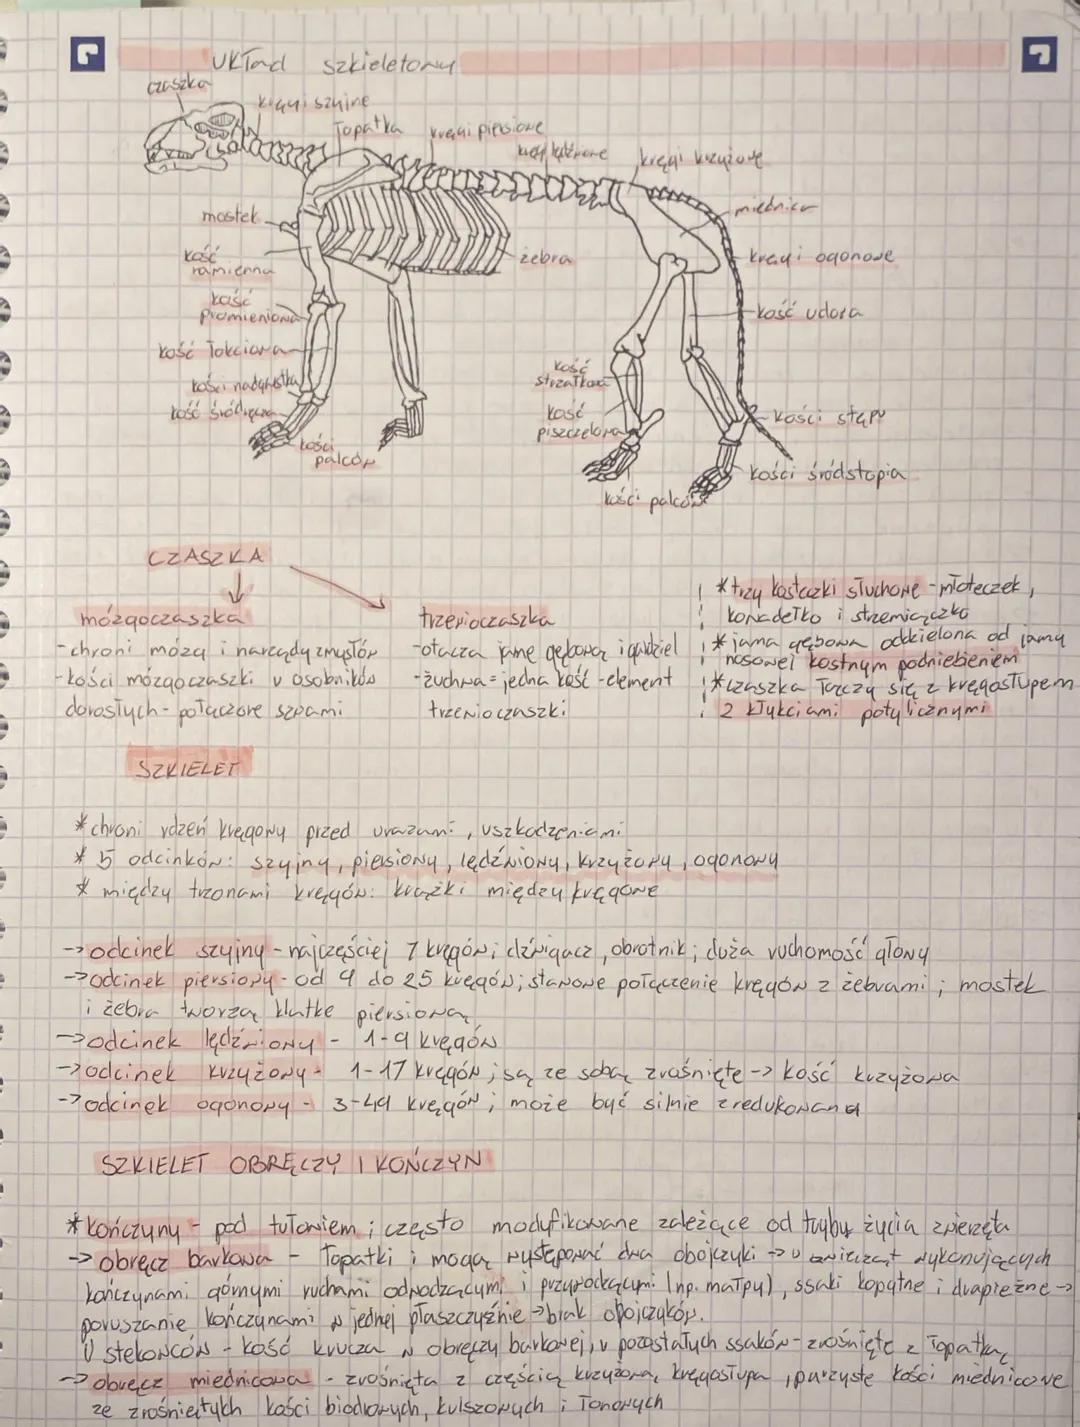 Układ szkieletowy
czaszka
kręgi szyjne
łopatka
kręgi piersiowe
kręgi lędźwiowe
kręgi krzyżowe
mostek
miednica
kość
ramienna
żebra
kręgi ogonowe
kość
promieniowa
kość udowa
kość łokciowa
kość
strzałkowa
kości nadgarstka
kość śródręcza
kość
piszczelowa
kości stępu
kości
palców
kości śródstopia
kości palców
CZASZKA
mózgoczaszka
-chroni mózg i narządy zmysłów
-kości mózgoczaszki u osobników
dorosłych - połączone szwami
trzewioczaszka
-otacza jamę gębową i gardziel
-żuchwa = jedna kość - element
trzewioczaszki
*trzy kosteczki słuchowe - młoteczek,
kowadełko i strzemiączko
*jama gębowa oddzielona od jamy
nosowej kostnym podniebieniem
*czaszka łączy się z kręgosłupem
2 kłykciami potylicznymi
SZKIELET
*chroni rdzeń kręgowy przed urazami, uszkodzeniami
* 5 odcinków: szyjny, piersiowy, lędźwiowy, krzyżowy, ogonowy
* między trzonami kręgów: krążki międzykręgowe
-> odcinek szyjny - najczęściej 7 kręgów; dźwigacz, obrotnik; duża ruchomość głowy
-> odcinek piersiowy - od 9 do 25 kręgów; stawowe połączenie kręgów z żebrami; mostek
i żebra tworzą klatkę piersiową
-> odcinek lędźwiowy - 1-9 kręgów
-> odcinek krzyżowy - 1-17 kręgów; są ze sobą zrośnięte -> kość krzyżowa
-> odcinek ogonowy - 3-49 kręgów; może być silnie zredukowana
SZKIELET OBRĘCZY I KOŃCZYN
*kończyny - pod tułowiem; często modyfikowane zależące od trybu życia zwierzęta
-> obręcz barkowa - łopatki i mogą występować dwa obojczyki -> u zwierząt wykonujących
kończynami górnymi ruchami odwodzącymi i przywodzącymi (np. małpy), ssaki kopytne i drapieżne ->
poruszanie kończynami w jednej płaszczyźnie -> brak obojczyków.
U stekowców - kość krucza w obręczy barkowej, u pozostałych ssaków - zrośnięte z łopatką
-> obręcz miednicowa - zrośnięta z częścią krzyżową kręgosłupa, parzyste kości miednicowe
ze zrośniętych kości biodrowych, kulszowych i łonowych